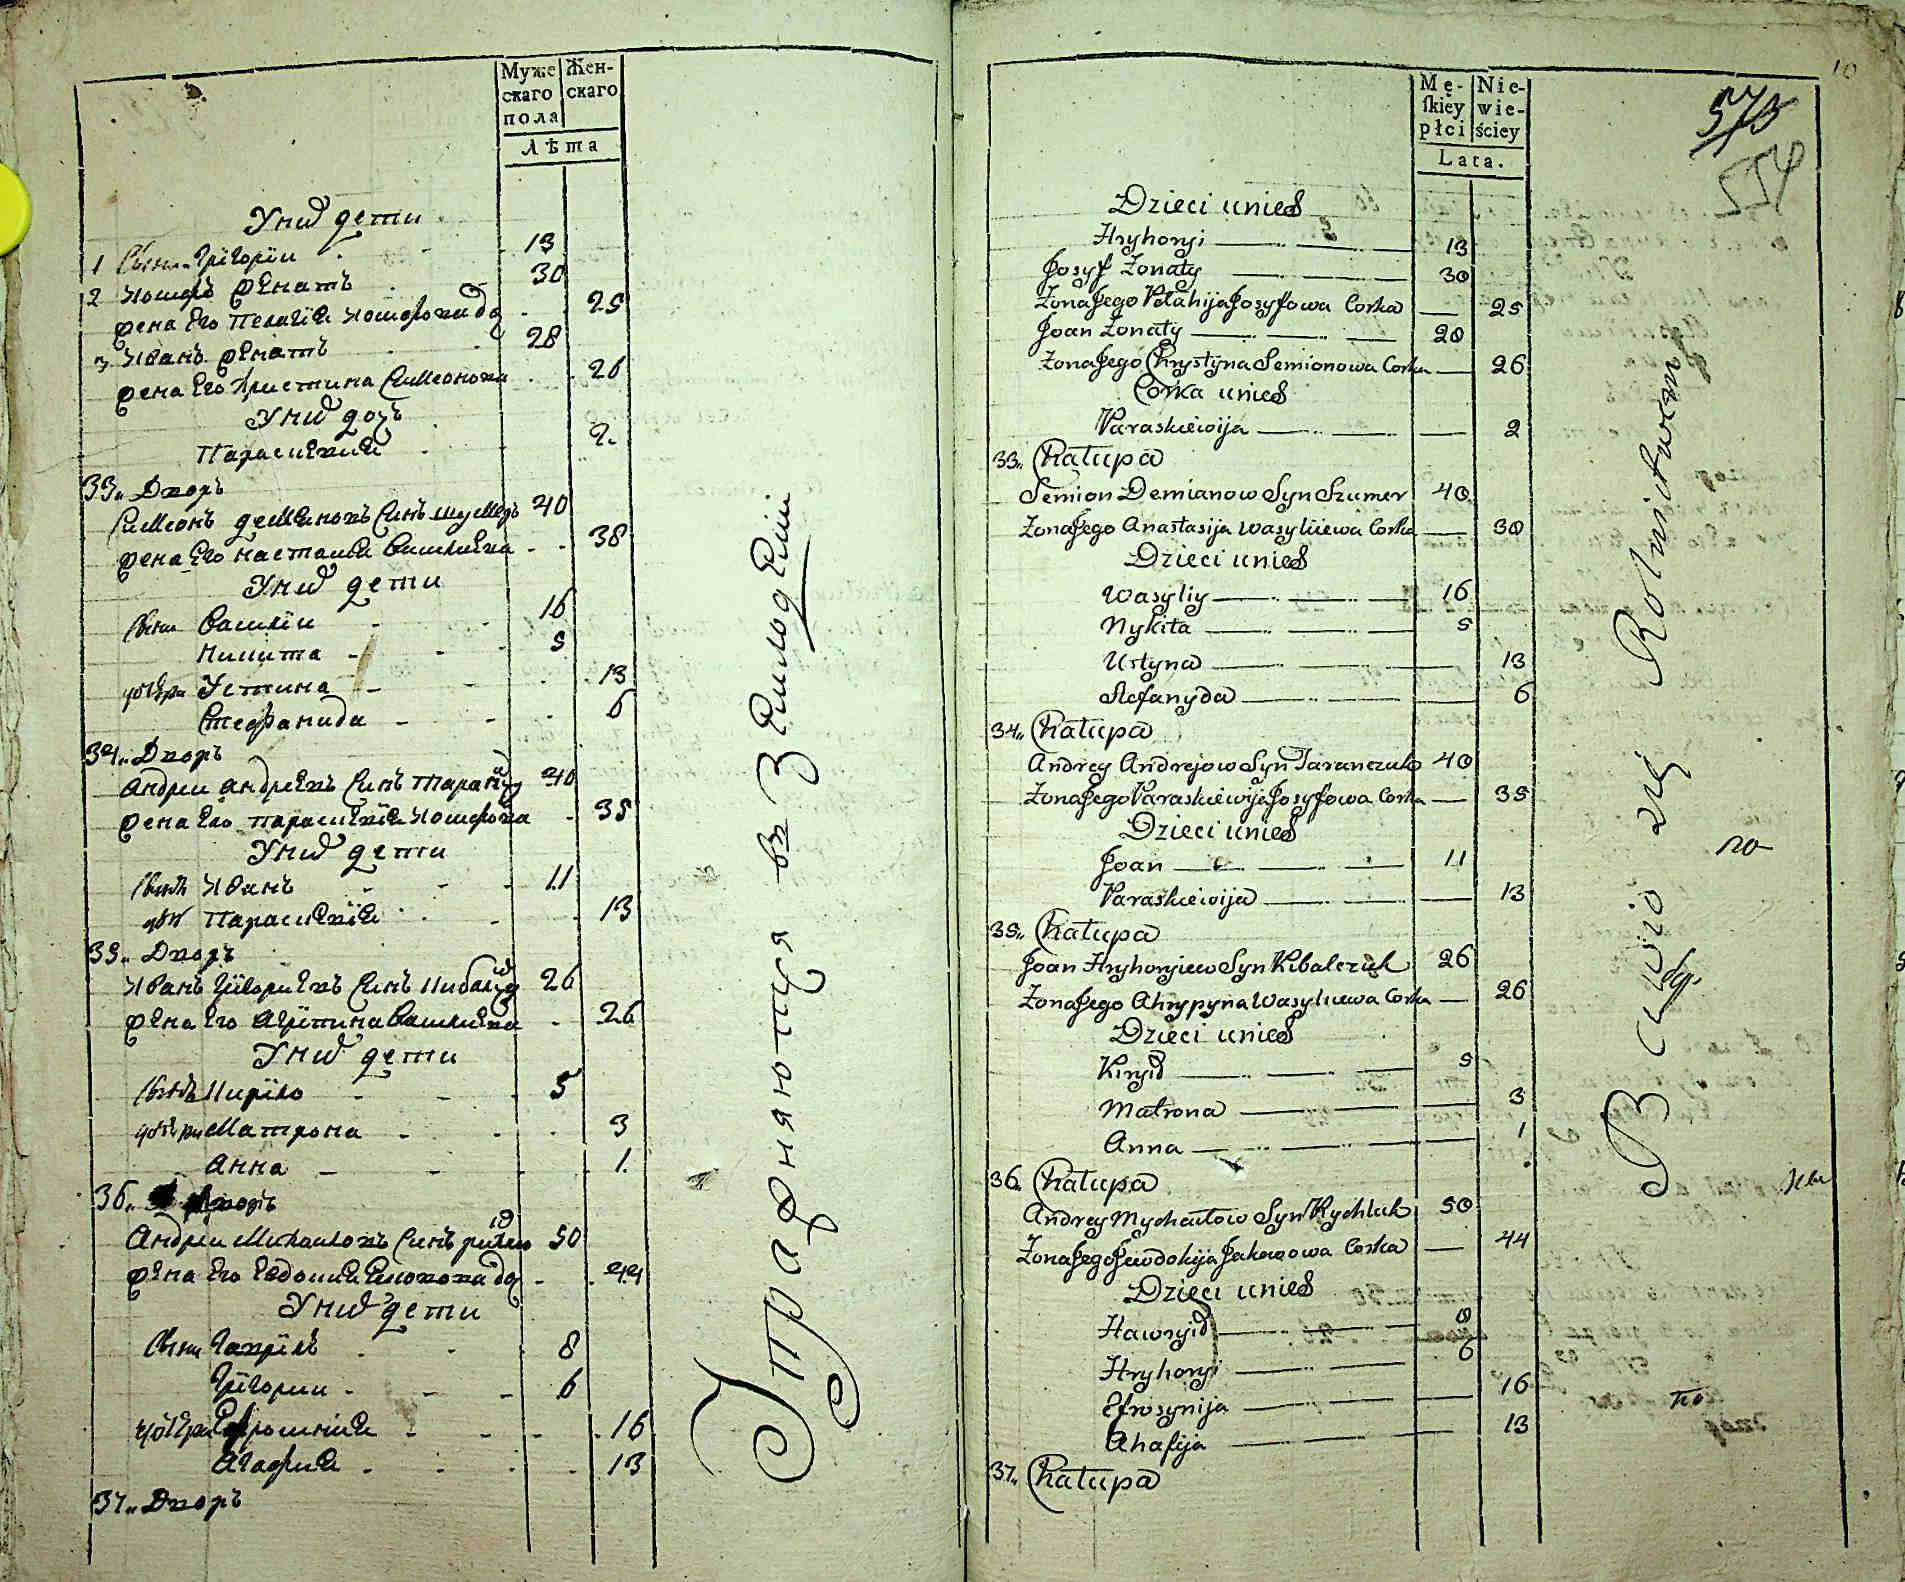 Муже
скаго
пола
Жен-
скаго
Лѣта
У нихъ дети
1 Сыны Григорїи 13
2 Иосифъ женатъ 30
жена Его Пелагїя Иосифова до 25
3 Иванъ женатъ 28
жена Его Христина Симеонова 26
У нихъ дочь
Параскевия 2.
33„ Дворъ
Симеонъ демяновъ Синъ шумеръ 40
жена Его настасия Василиева 38
У нихъ дети
Сыны Василїи 16
Никита 5
дочери Устина 13
Стефанида 6
34„ Дворъ
Андреи андреевъ Синъ Таранчу 40
жена Его параскевїя Иосифова 35
У нихъ дети
Сынъ Иванъ 11
дочь Параскевїя 13
35„ Дворъ
Иванъ Григориевъ Синъ Кибалчу 26
жена Его Агрипина Василиева 26
У нихъ дети
Сынъ Кирїло 5
дочери Матрона 3
Анна 1.
36„ Дворъ
Андреи Михаиловъ Синъ рихлю 50
жена Его Евдокия Яковова до 44
У нихъ дети
Сыны Гаврїлъ 8
Григории 6
дочери Ефросинїя 16
Агафия 13
37„ Дворъ
Упражняются въ Земледелїи
10
573
554
Mę-
ſkiey
płci
Nie-
wie-
ściey
Lata.
Dzieci unich
Hryhoryi 13
Josyf Zonaty 30
Zona Jego Pelahija Josyfowa Corka 25
Joan Zonaty 28
Zona Jego Chrystyna Semionowa Corka 26
Corka unich
Paraskiewija 2
33„ Chałupa
Semion Demianow Syn Szumer 40
Zona Jego Anastasija Wasyliiewa Corka 38
Dzieci unich
Wasyliy 16
Nykita 5
Ustyna 13
Stefanyda 6
34„ Chałupa
Andrey Andrejow Syn Taranczuk 40
Zona Jego Paraskiewija Josyfowa Corka 35
Dzieci unich
Joan 11
Paraskiewija 13
35„ Chałupa
Joan Hryhoryiew Syn Kibalczuk 26
Zona Jego Ahrypyna Wasyliiewa Corka 26
Dzieci unich
Kirył 5
Matrona 3
Anna 1
36„ Chałupa
Andrey Mychaiłow Syn Rychluk 50
Zona Jego Jewdokija Jakowowa Corka 44
Dzieci unich
Hawrył 8
Hryhoryi 6
Efrosynija 16
Ahafija 13
37„ Chałupa
Bawio się Rolnictwem